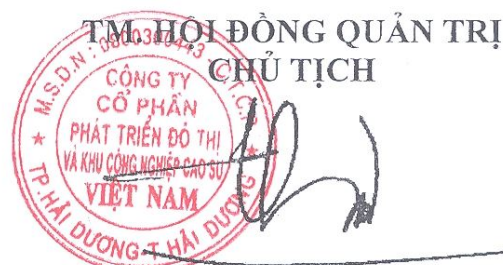 TM. HỘI ĐỒNG QUẢN TRỊ
CHỦ TỊCH
M.S.D.N
C.T.C.P
CÔNG TY
CỔ PHẦN
PHÁT TRIỂN ĐÔ THỊ
VÀ KHU CÔNG NGHIỆP CAO SU
VIỆT NAM
TP.HẢI DƯƠNG-T.HẢI DƯƠNG